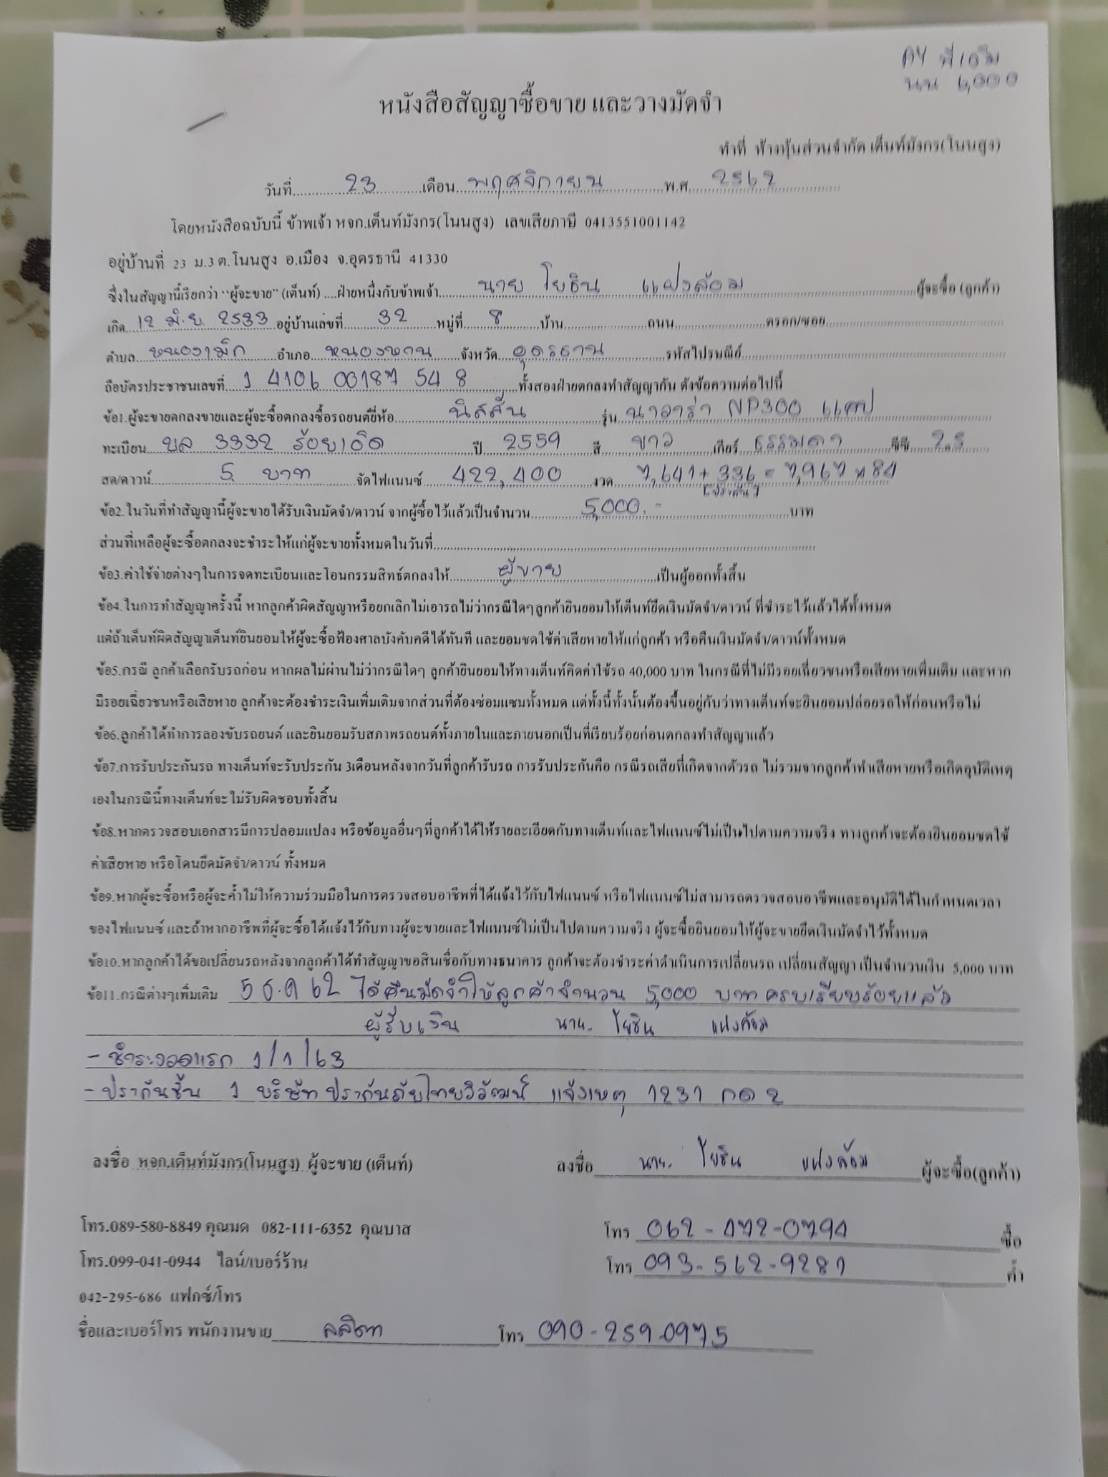 AY พี่เอ๋ม
นน 6,000
หนังสือสัญญาซื้อขาย และวางมัดจำ
ทำที่ ห้างหุ้นส่วนจำกัด เต็นท์มังกร(โนนสูง)
วันที่ 23 เดือน พฤศจิกายน พ.ศ 2562
โดยหนังสือฉบับนี้ ข้าพเจ้า หจก.เต็นท์มังกร(โนนสูง) เลขเสียภาษี 0413551001142
อยู่บ้านที่ 23 ม.3 ต.โนนสูง อ.เมือง จ.อุดรธานี 41330
ซึ่งในสัญญานี้เรียกว่า "ผู้จะขาย" (เต็นท์) ....ฝ่ายหนึ่งกับข้าพเจ้า นาย โยธิน แฝงด้อม ผู้จะซื้อ (ลูกค้า)
เกิด 12 มิ.ย 2533 อยู่บ้านเลขที่ 32 หมู่ที่ 8 บ้าน ถนน ตรอก/ซอย
ตำบล หนองเม็ก อำเภอ หนองหาน จังหวัด อุดรธานี รหัสไปรษณีย์
ถือบัตรประชาชนเลขที่ 1 4106 00187 54 8 ทั้งสองฝ่ายตกลงทำสัญญากัน ดังข้อความต่อไปนี้
ข้อ1.ผู้จะขายตกลงขายและผู้จะซื้อตกลงซื้อรถยนต์ยี่ห้อ นิสสัน รุ่น นาวาร่า NP300 แคป
ทะเบียน บล 3332 ร้อยเอ็ด ปี 2559 สี ขาว เกียร์ ธรรมดา ซีซี 2.5
สด/ดาวน์ 5 บาท จัดไฟแนนซ์ 422,400 งวด 7,641 + 336 = 7,967 x 84
ข้อ2.ในวันที่ทำสัญญานี้ผู้จะขายได้รับเงินมัดจำ/ดาวน์ จากผู้ซื้อไว้แล้วเป็นจำนวน 5,000.- บาท
ส่วนที่เหลือผู้จะซื้อตกลงจะชำระให้แก่ผู้จะขายทั้งหมดในวันที่
ข้อ3.ค่าใช้จ่ายต่างๆในการจดทะเบียนและโอนกรรมสิทธ์ตกลงให้ ผู้ขาย เป็นผู้ออกทั้งสิ้น
ข้อ4.ในการทำสัญญาครั้งนี้ หากลูกค้าผิดสัญญาหรือยกเลิกไม่เอารถไม่ว่ากรณีใดๆลูกค้ายินยอมให้เต็นท์ยึดเงินมัดจำ/ดาวน์ ที่ชำระไว้แล้วได้ทั้งหมด
แต่ถ้าเต็นท์ผิดสัญญาเต็นท์ยินยอมให้ผู้จะซื้อฟ้องศาลบังคับคดีได้ทันที และยอมชดใช้ค่าเสียหายให้แก่ลูกค้า หรือคืนเงินมัดจำ/ดาวน์ทั้งหมด
ข้อ5.กรณี ลูกค้าเลือกรับรถก่อน หากผลไม่ผ่านไม่ว่ากรณีใดๆ ลูกค้ายินยอมให้ทางเต็นท์คิดค่าใช้รถ 40,000 บาท ในกรณีที่ไม่มีรอยเฉี่ยวชนหรือเสียหายเพิ่มเติม และหาก
มีรอยเฉี่ยวชนหรือเสียหาย ลูกค้าจะต้องชำระเงินเพิ่มเติมจากส่วนที่ต้องซ่อมแซมทั้งหมด แต่ทั้งนี้ทั้งนั้นต้องขึ้นอยู่กับว่าทางเต็นท์จะยินยอมปล่อยรถให้ก่อนหรือไม่
ข้อ6.ลูกค้าได้ทำการลองขับรถยนต์ และยินยอมรับสภาพรถยนต์ทั้งภายในและภายนอกเป็นที่เรียบร้อยก่อนตกลงทำสัญญาแล้ว
ข้อ7.การรับประกันรถ ทางเต็นท์จะรับประกัน 3เดือนหลังจากวันที่ลูกค้ารับรถ การรับประกันคือ กรณีรถเสียที่เกิดจากตัวรถ ไม่รวมจากลูกค้าทำเสียหายหรือเกิดอุบัติเหตุ
เองในกรณีนี้ทางเต็นท์จะไม่รับผิดชอบทั้งสิ้น
ข้อ8.หากตรวจสอบเอกสารมีการปลอมแปลง หรือข้อมูลอื่นๆที่ลูกค้าได้ให้รายละเอียดกับทางเต็นท์และไฟแนนซ์ไม่เป็นไปตามความจริง ทางลูกค้าจะต้องยินยอมชดใช้
ค่าเสียหาย หรือโดนยึดมัดจำ/ดาวน์ ทั้งหมด
ข้อ9.หากผู้จะซื้อหรือผู้จะค้ำไม่ให้ความร่วมมือในการตรวจสอบอาชีพที่ได้แจ้งไว้กับไฟแนนซ์ หรือไฟแนนซ์ไม่สามารถตรวจสอบอาชีพและอนุมัติได้ในกำหนดเวลา
ของไฟแนนซ์ และถ้าหากอาชีพที่ผู้จะซื้อได้แจ้งไว้กับทางผู้จะขายและไฟแนนซ์ไม่เป็นไปตามความจริง ผู้จะซื้อยินยอมให้ผู้จะขายยึดเงินมัดจำไว้ทั้งหมด
ข้อ10.หากลูกค้าได้ขอเปลี่ยนรถหลังจากลูกค้าได้ทำสัญญาขอสินเชื่อกับทางธนาคาร ลูกค้าจะต้องชำระค่าดำเนินการเปลี่ยนรถ เปลี่ยนสัญญา เป็นจำนวนเงิน 5,000 บาท
ข้อ11.กรณีต่างๆเพิ่มเติม ได้คืนมัดจำให้ลูกค้าจำนวน 5,000 บาท ครบเรียบร้อยแล้ว
ผู้รับเงิน นาย โยธิน แฝงด้อม
- ชำระงวดแรก 1/1/63
- ประกันชั้น 1 บริษัท ประกันภัยไทยวิวัฒน์ แจ้งเหตุ 1231 กด 2
ลงชื่อ หจก.เต็นท์มังกร(โนนสูง) ผู้จะขาย (เต็นท์) ลงชื่อ นาย โยธิน แฝงด้อม ผู้จะซื้อ(ลูกค้า)
โทร.089-580-8849 คุณมด 082-111-6352 คุณบาส โทร 062-472-0794 ซื้อ
โทร.099-041-0944 ไลน์/เบอร์ร้าน โทร 093-562-9281 ค้ำ
042-295-686 แฟกซ์/โทร
ชื่อและเบอร์โทร พนักงานขาย ลลิตา โทร 090-259-0975